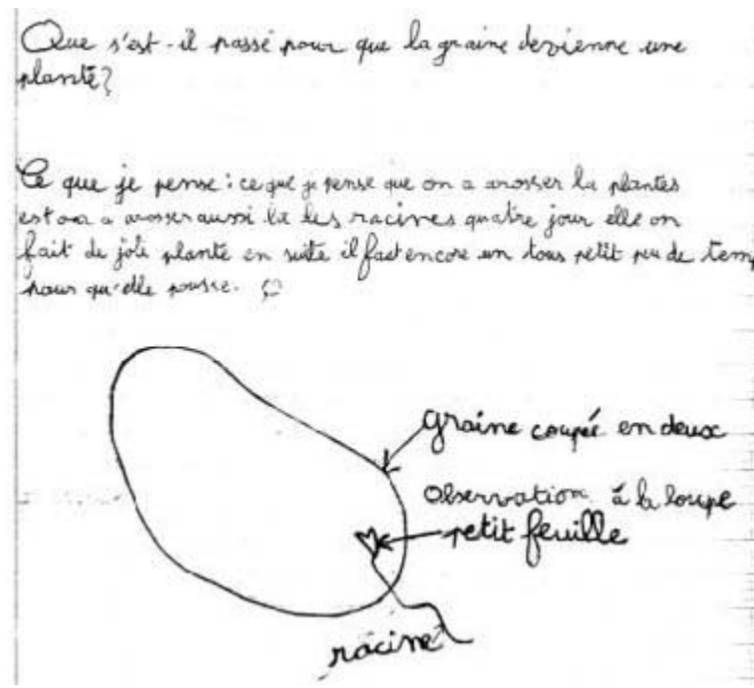 Que s'est-il passé pour que la graine devienne une
plante?
Ce que je pense: ce que je pense que on a arosser la plantes
est on a arosser aussi la les racines quatre jour elle on
fait de joli plante en suite il faut encore un tous petit peu de tem
pour qu'elle pousse.
graine coupée en deux
Observation à la loupe
petit feuille
racine